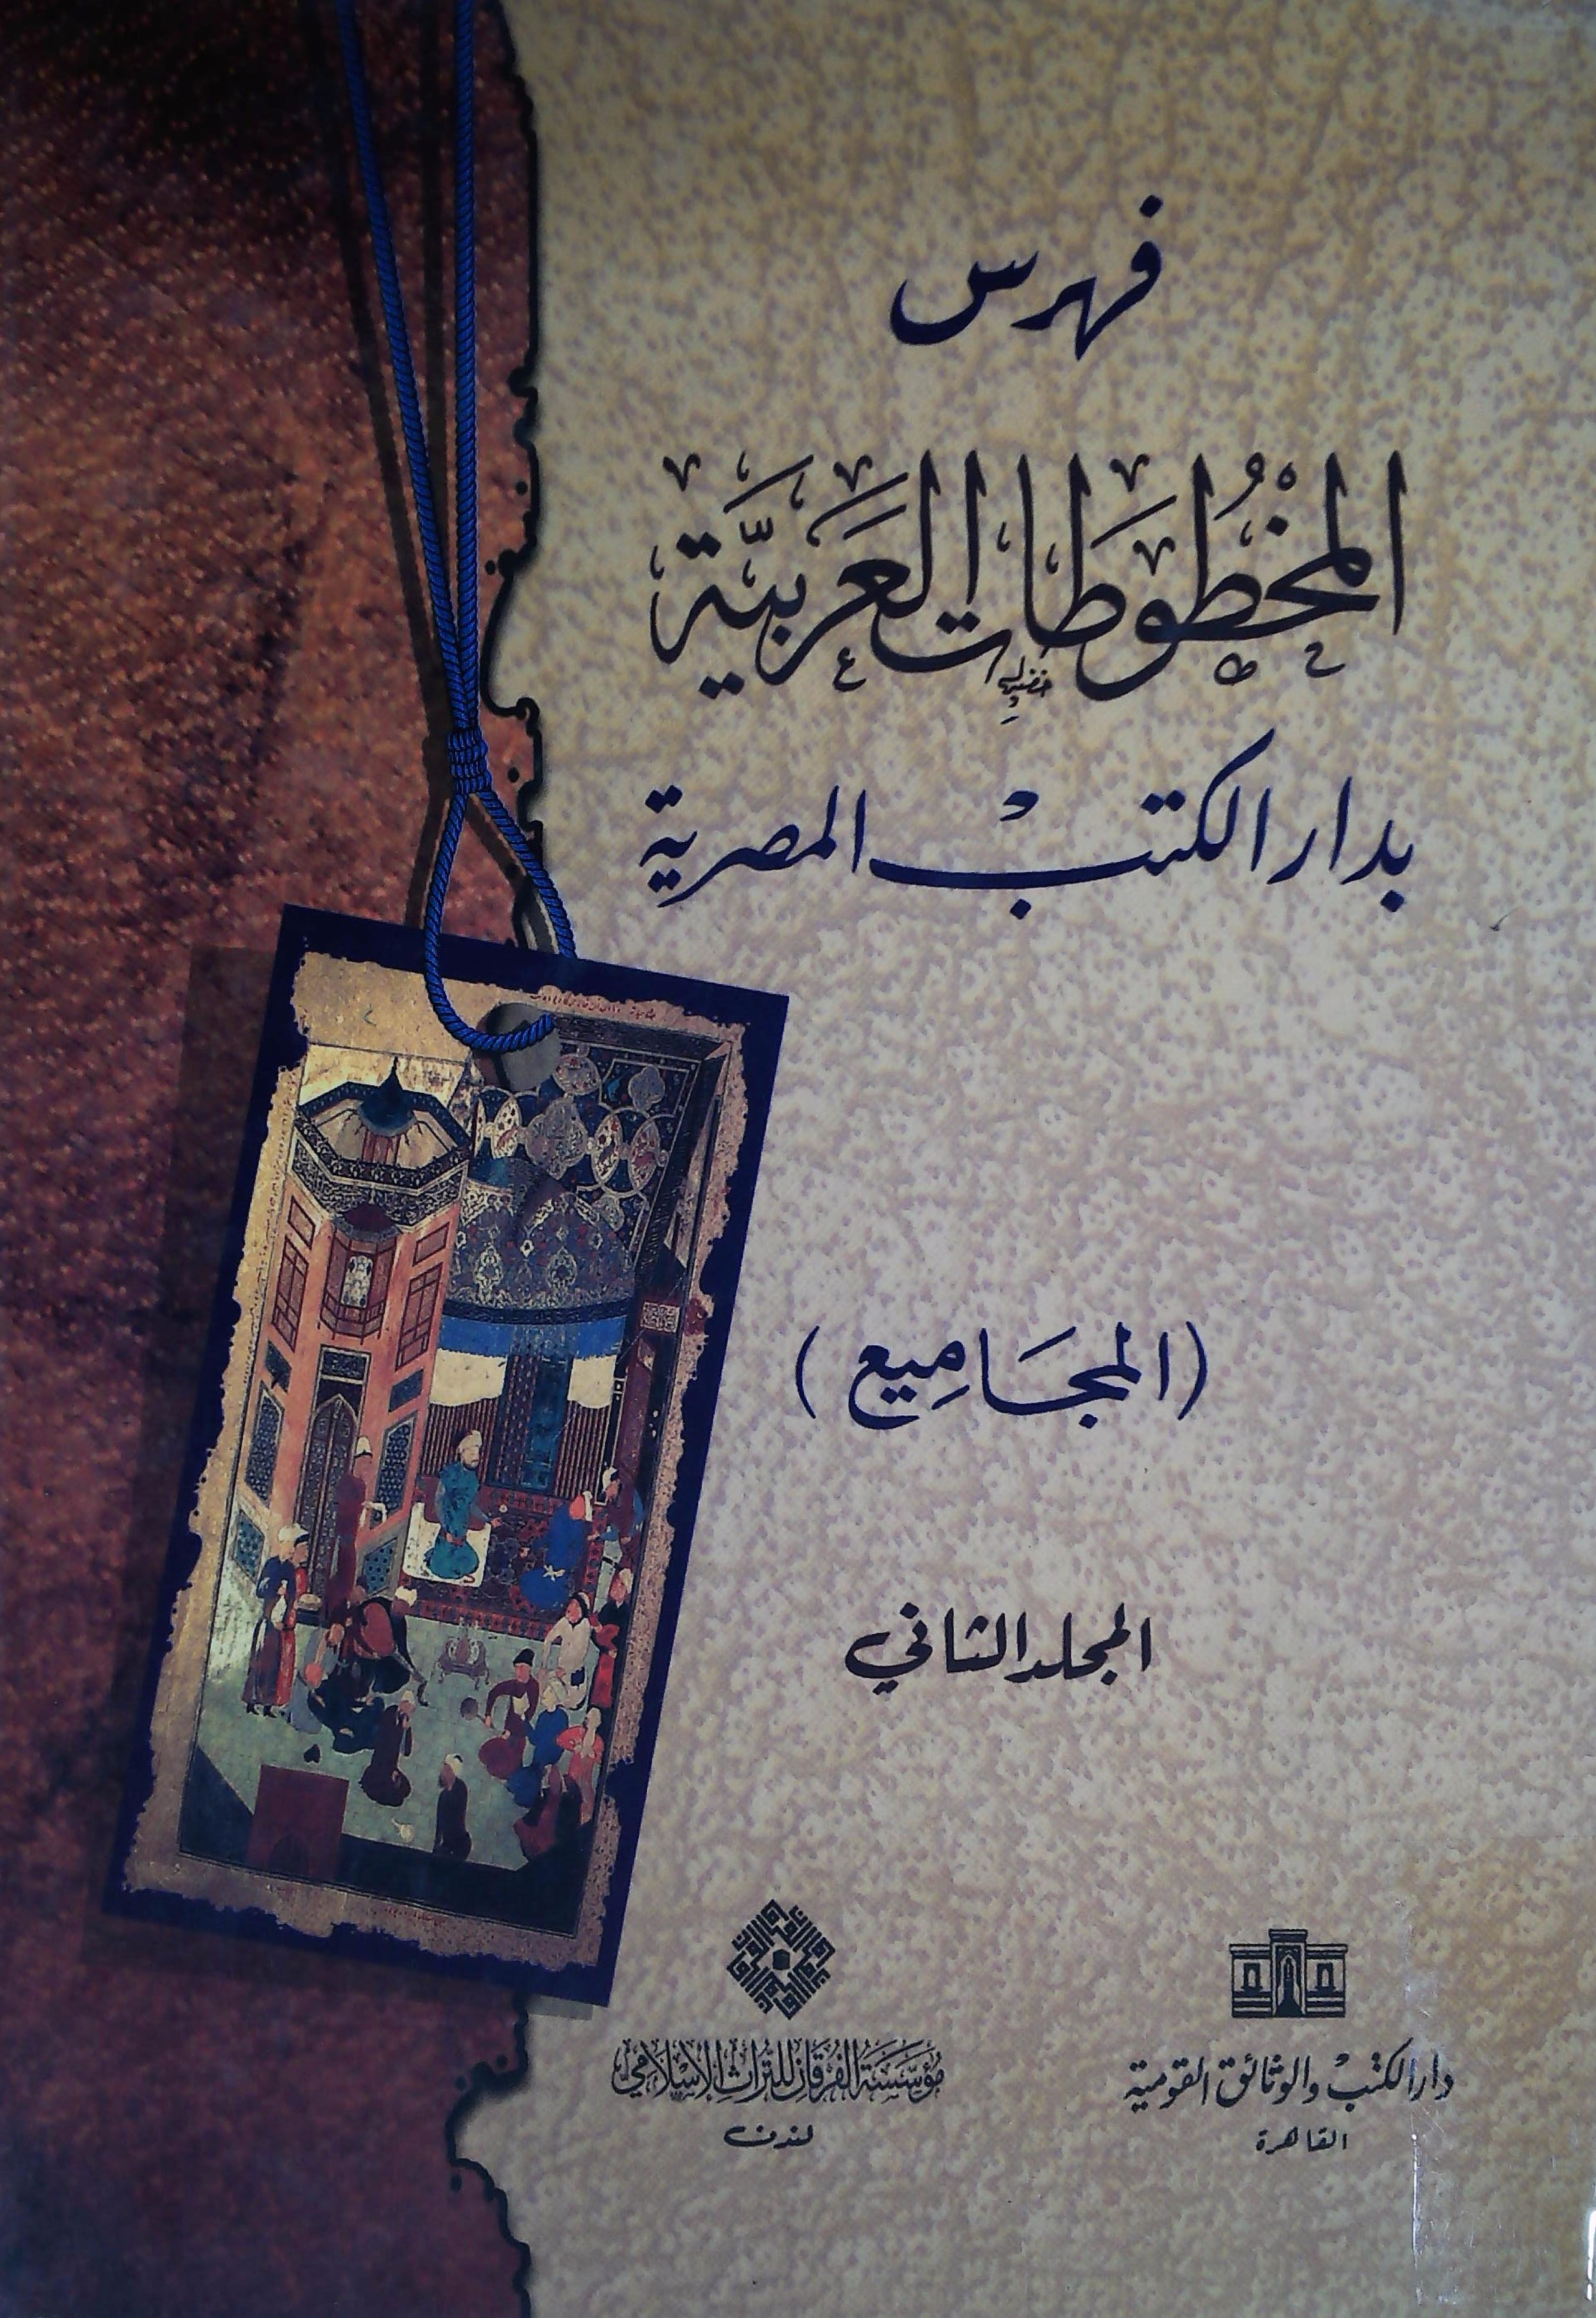 فهرس
المخْطُوطَات العَرَبيَّة
بدار الكتبْ المصرية
(المجَامِيع)
المجلد الثاني
دار الكتبْ والوثائق القومية
القاهرة
مُؤسَّسَة الفُرقَان للتُراث الإسْلَامي
لندن